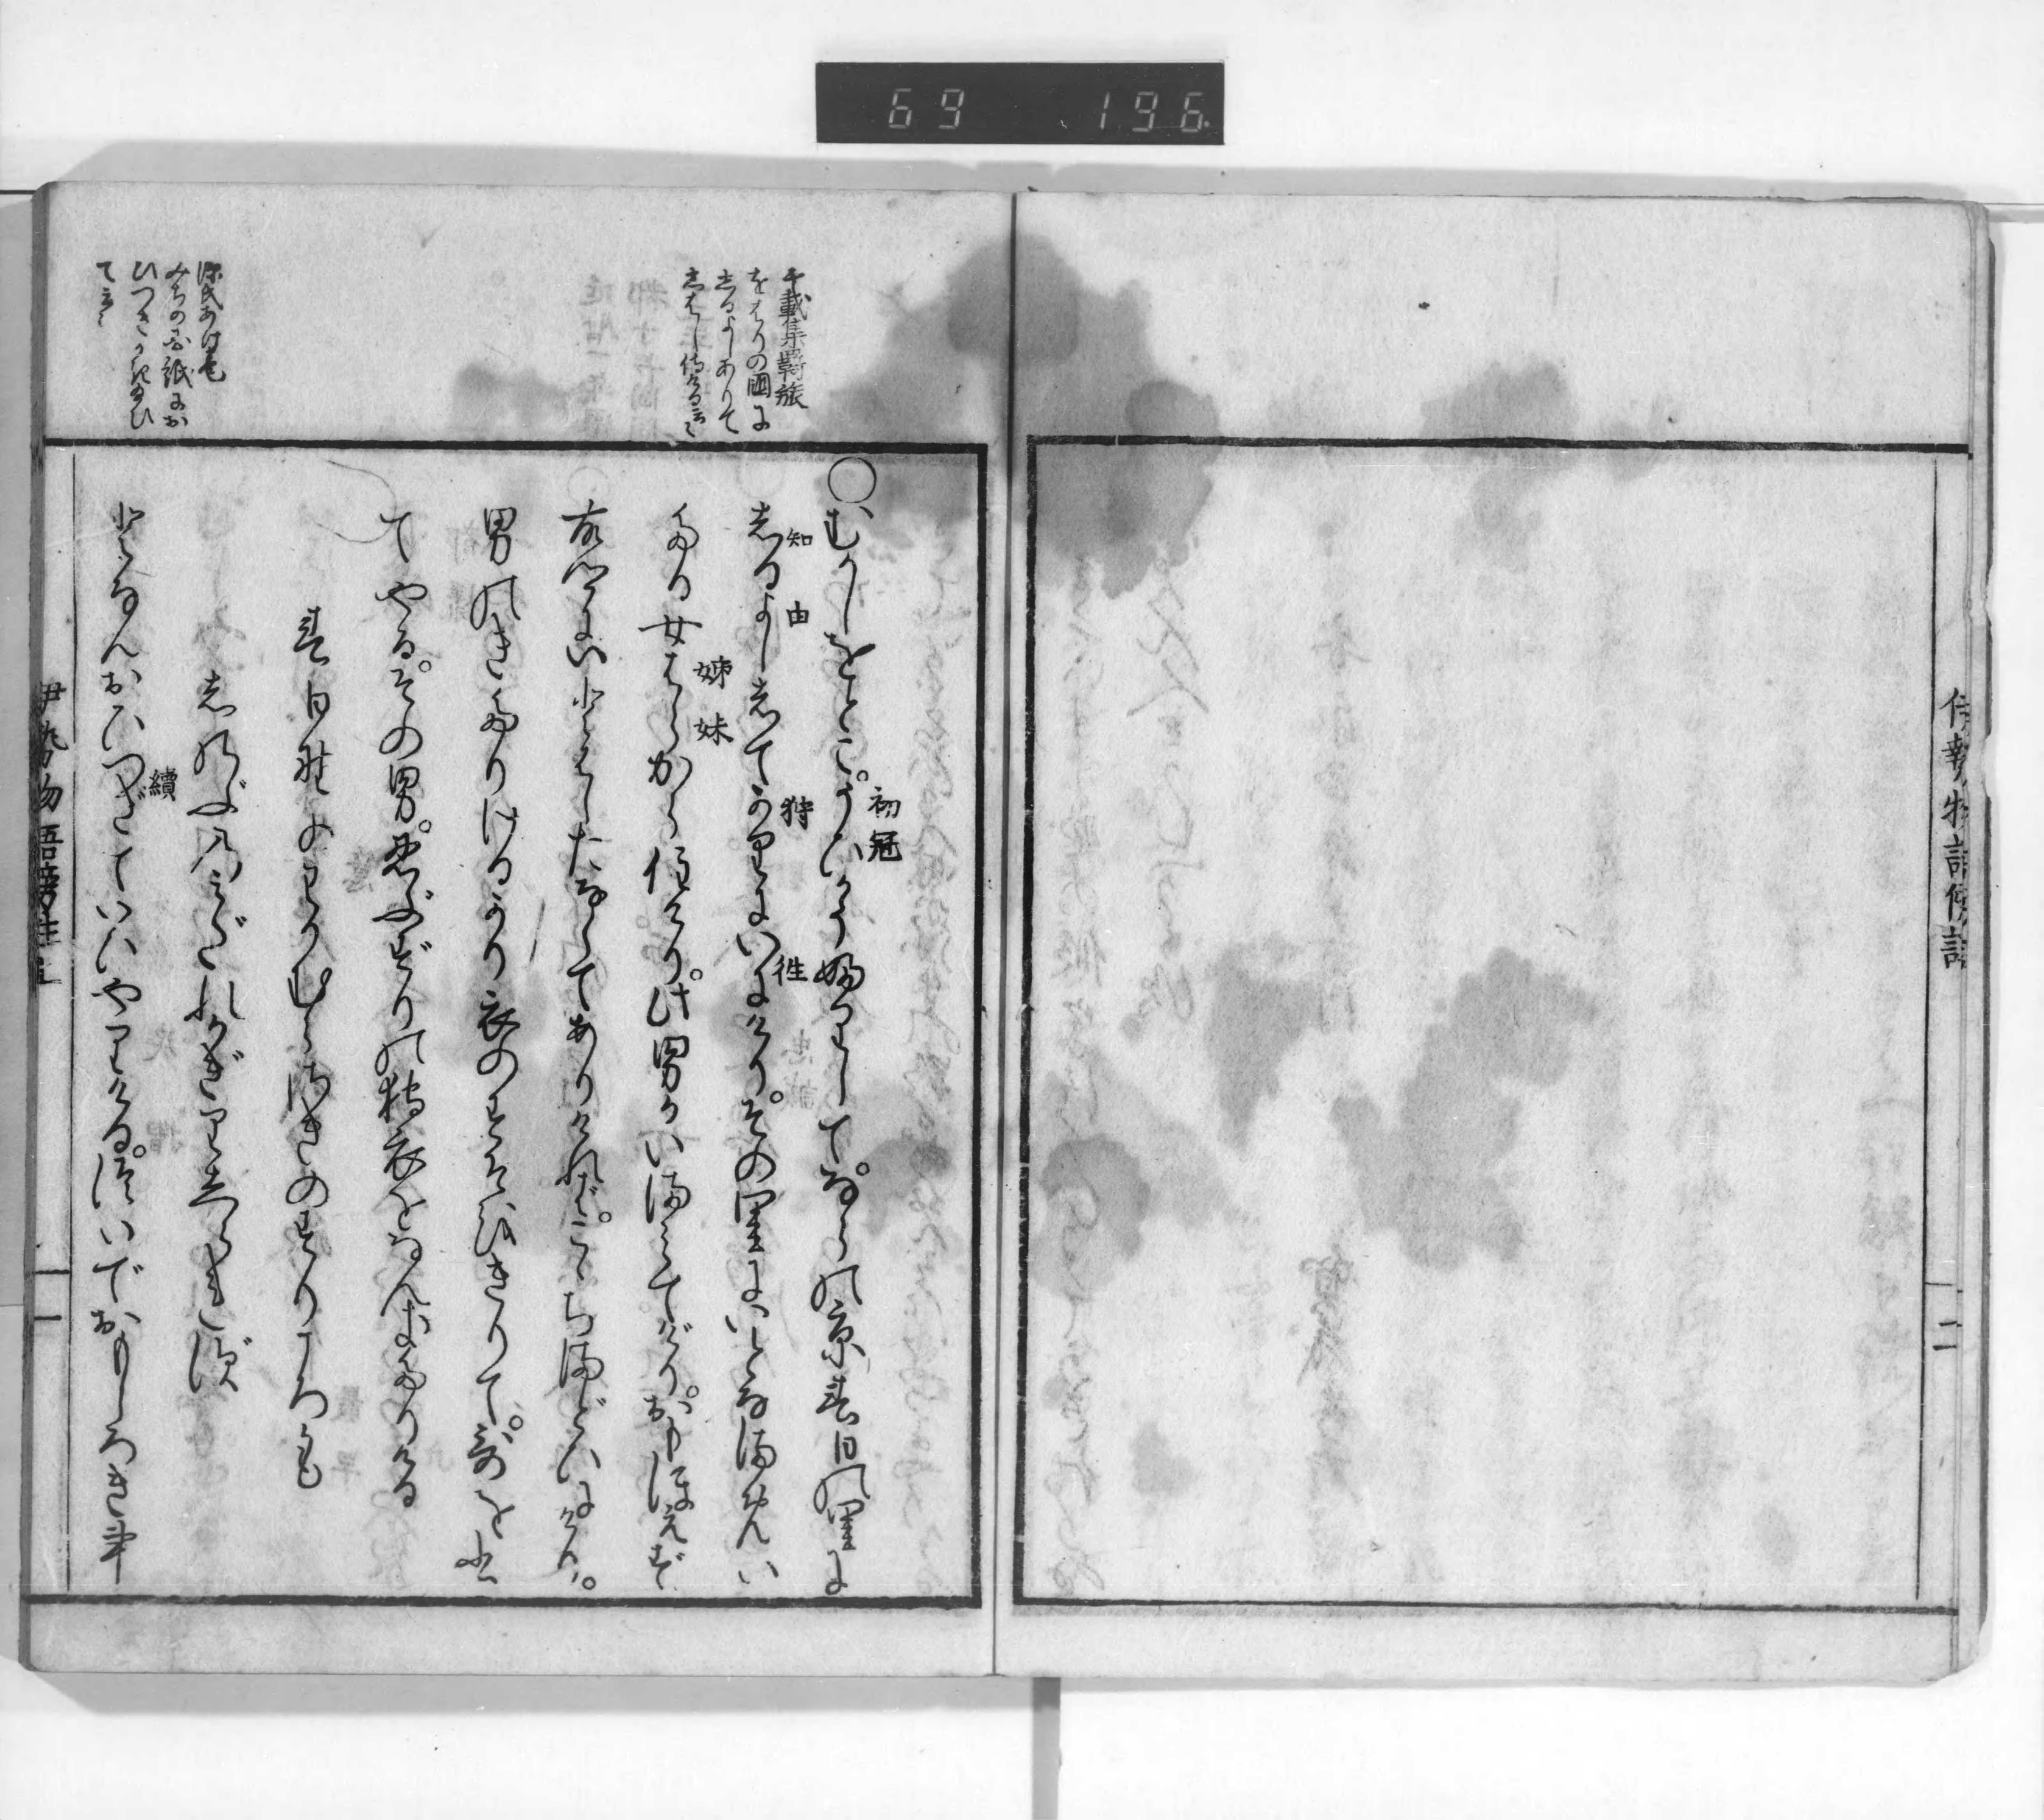 伊勢物語傍註
二
千載集羇旅
をはりの國に
しるよしありて
しはし侍ける云々
初冠
○むかしをとこ。うひかうふりして。ならの京春日の里に
知 由 狩 往
しるよししてかりにいにけり。その里にいとなまめい
姊 妹
たる女はらから住けり。此男かいまみてげり。おもほえず
故郷にいとはしたなくてありければ。こゝちまどひにけり。
男のきたりけるかり衣のすそをきりて。哥を書
てやる。その男。忍ぶずりの狩衣をなんきたりける
春日野のわかむらさきのすりころも
しのぶのみだれかぎりしられず
續
となんおひつぎていひやりける。ついでおもしろき事
みちの国紙にお
て云々
伊勢物語傍註上
一
69 196